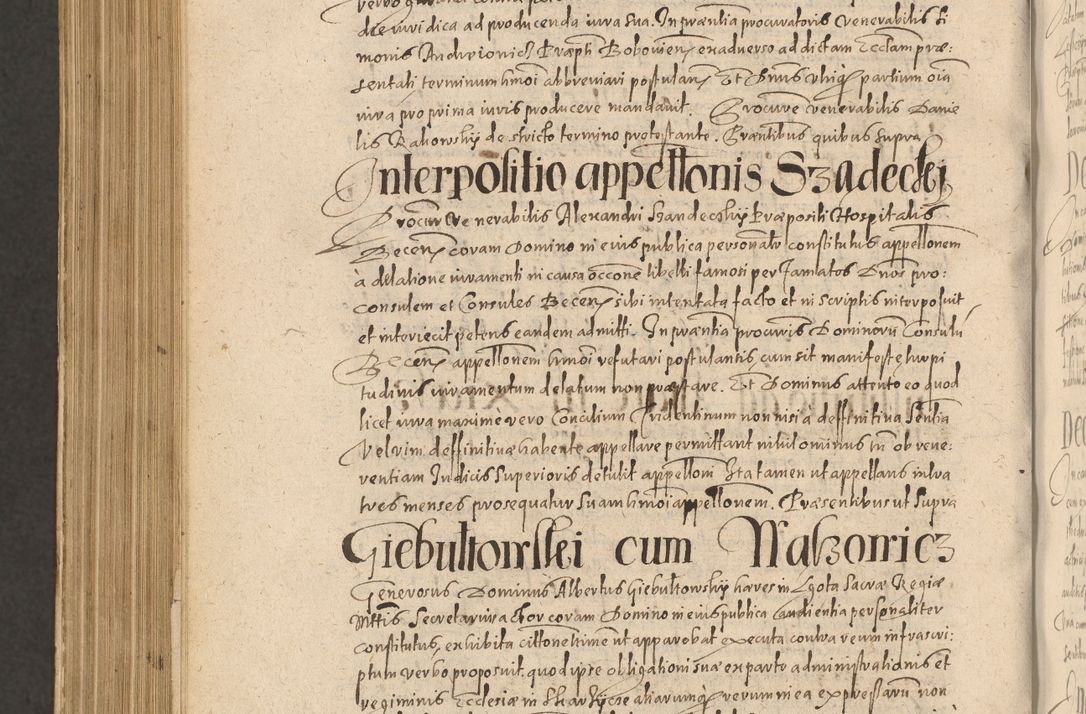 die iuridica ad producenda iura sua. In præntia procuratoris Venerabilis Si
monis Andrionicz Præpti Bobovien, ex adverso ad dictam Ecclam præ:
sentati terminum hmoi abbreviari postulan, Et Dnus Vtriq partium oia
iura pro prima iuris producere mandavit. Procurre venerabilis Danie
lis Rakowskÿ de stricto termino protestante. Præntibus quibus supra
Interpositio appeltonis Szadecksj
Procur Venerabilis Alexandri Szandeczkÿ Præpositi Hospitalis
Becen, coram Domino in eius publica personalr constitutus appellonem
à delatione iuramenti in causa occone libelli famosi per famatos Dnos pro:
consulem et Consules Becen, sibi intentata facto et in scriptis interposuit
et interiecit petens eandem admitti. In præntia procuris Dominorū Consulū
Becen, appellonem hmoi refutari postulantis, cum sit manifeste turpi
tudinis iuramentum delatum non præstare. Et Dominus attento eo quod
licet iura maxime vero Concilium Tridentinum non nisi à deffinitiva Sentia
Vel vim deffinitivæ habente appellare permittant nihilominus tn ob reve:
rentiam Iudicis Superioris detulit appellonì Ita tamen ut appellans intra
tres menses prosequatur suam hmoi appellonem. Præsentibus ut supra
Giebultowskei cum Walszowicz
Generosus Dominus Albertus Giebultowskÿ hæres in Lgota Sacræ Regiæ
Mttis Secretarius Actor coram Domino in eius publica audientia personaliter
constitutus, exhibita cittone ltime ut apparobat executa contra reum infrascri:
ptum verbo proposuit, quod ipse obligationi suæ ex parte administrationis et
regiminis Ecclesiæ in aliarumq rerum in ea expressarū non